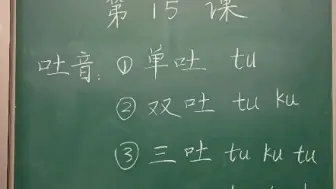 第 15 课
吐音: ① 单吐 tu
② 双吐 tu ku
③ 三吐 tu ku tu